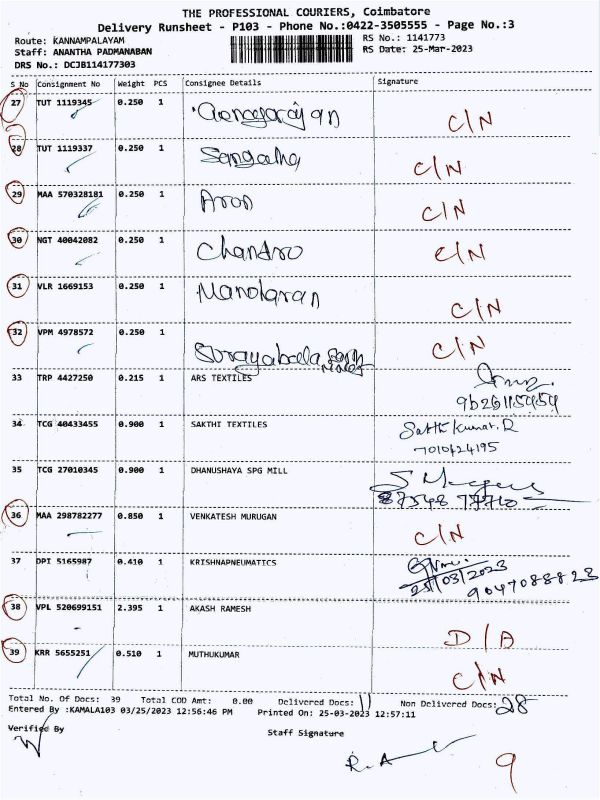 THE PROFESSIONAL COURIERS, Coimbatore
Delivery Runsheet - P103 - Phone No.:0422-3505555 - Page No.:3
Route: KANNAMPALAYAM RS No.: 1141773
Staff: ANANTHA PADMANABAN RS Date: 25-Mar-2023
DRS No.: DCJB114177303
S No Consignment No Weight PCS Consignee Details Signature
27 TUT 1119345 0.250 1 C/N
28 TUT 1119337 0.250 1 Sangatha C/N
29 MAA 570328181 0.250 1 Aron C/N
30 NGT 40042082 0.250 1 Chandro C/N
31 VLR 1669153 0.250 1 Manoharan C/N
32 VPM 4978572 0.250 1 C/N
33 TRP 4427250 0.215 1 ARS TEXTILES
34 TCG 40433455 0.900 1 SAKTHI TEXTILES Sakthi Kumar. R
7010624195
35 TCG 27010345 0.900 1 DHANUSHAYA SPG MILL
87548 77710
36 MAA 298782277 0.850 1 VENKATESH MURUGAN C/N
37 DPI 5165987 0.410 1 KRISHNAPNEUMATICS
25/03/2023 9047088823
38 VPL 520699151 2.395 1 AKASH RAMESH D/A
39 KRR 5655251 0.510 1 MUTHUKUMAR C/N
Total No. Of Docs: 39 Total COD Amt: 0.00 Delivered Docs: 11 Non Delivered Docs: 28
Entered By :KAMALA103 03/25/2023 12:56:46 PM Printed On: 25-03-2023 12:57:11
Verified By Staff Signature
R.A
9